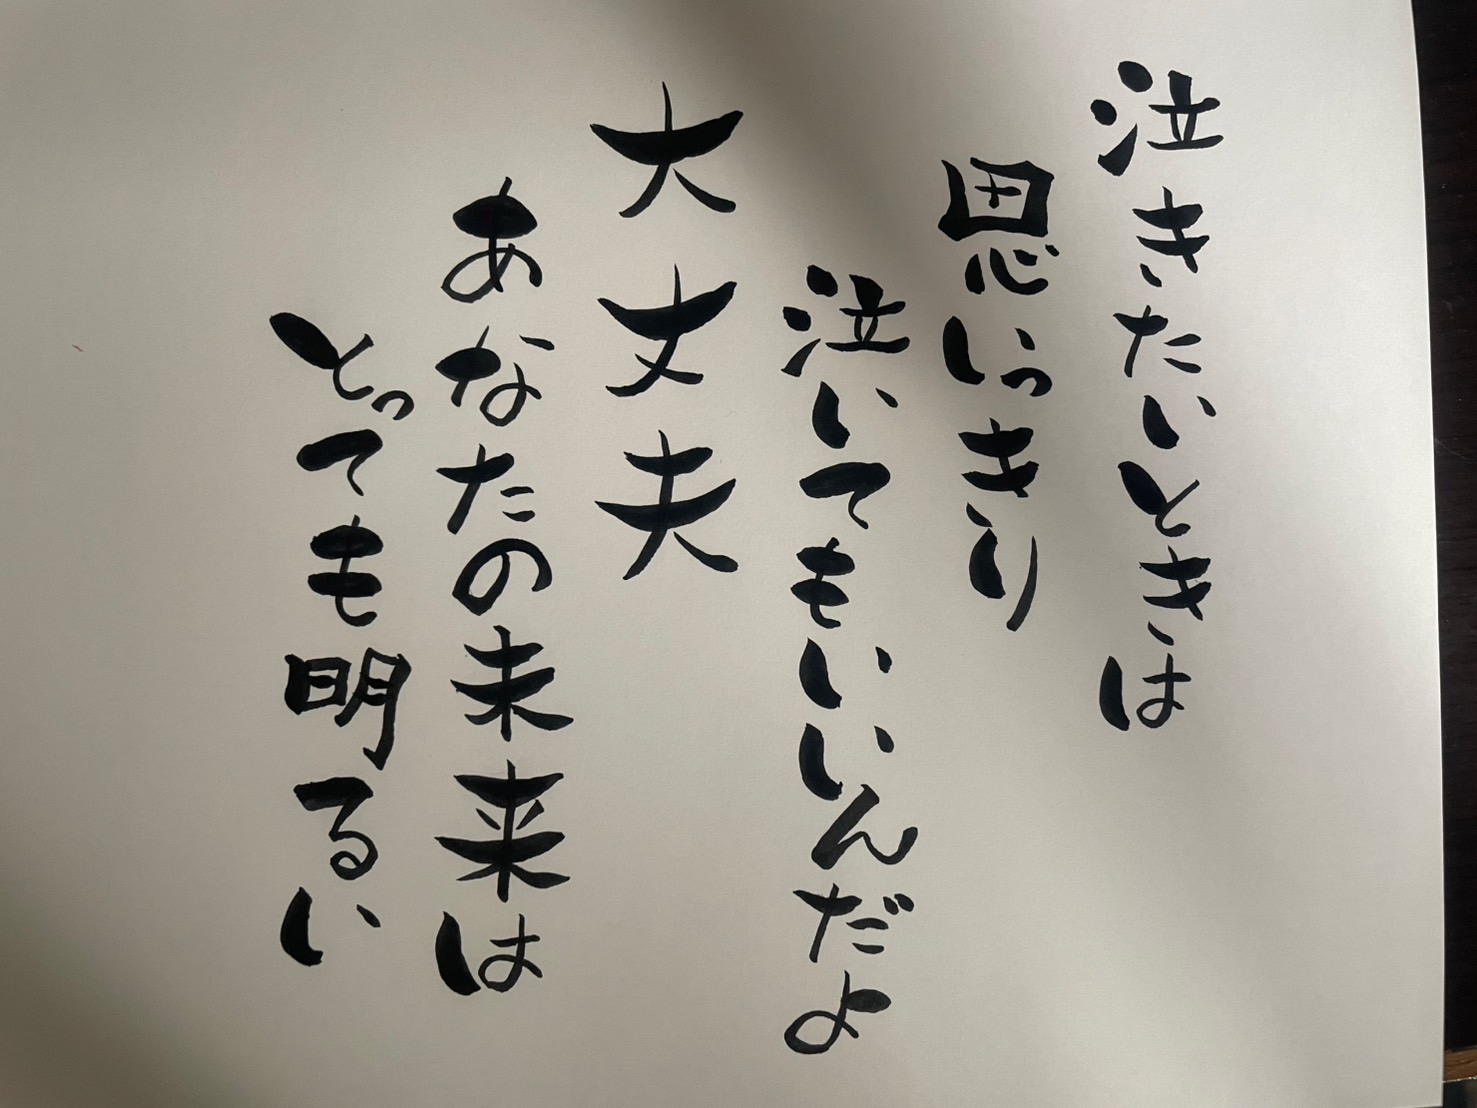 泣きたいときは
思いっきり
泣いてもいいんだよ
大丈夫
あなたの未来は
とっても明るい